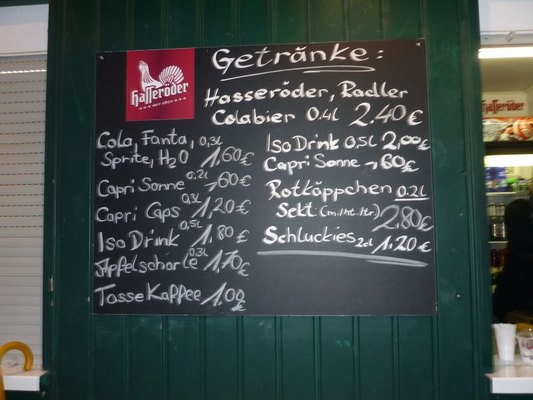 Hasseröder
Getränke:
Hasseröder, Radler
Colabier 0.4l 2.40€
Cola, Fanta, 0,3l
Sprite, H2O 1,60€
Capri Sonne 0.2l -,60€
Capri Caps 0,3l 1,20€
Iso Drink 0,5l 1,80€
Apfelschorle 0.3l 1,70€
Tasse Kaffee 1,00€
Iso Drink 0,5l 2,00€
Capri Sonne -,60€
Rotkäppchen 0.2l
Sekt (m./ht./tr.) 2,80€
Schluckies 2cl 1,20€
Hasseröder